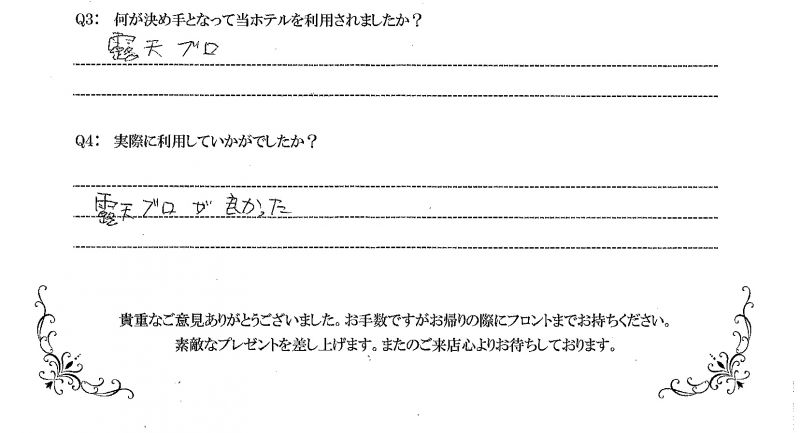 Q3: 何が決め手となって当ホテルを利用されましたか？
露天ブロ
Q4: 実際に利用していかがでしたか？
露天ブロが良かった
貴重なご意見ありがとうございました。お手数ですがお帰りの際にフロントまでお持ちください。
素敵なプレゼントを差し上げます。またのご来店心よりお待ちしております。